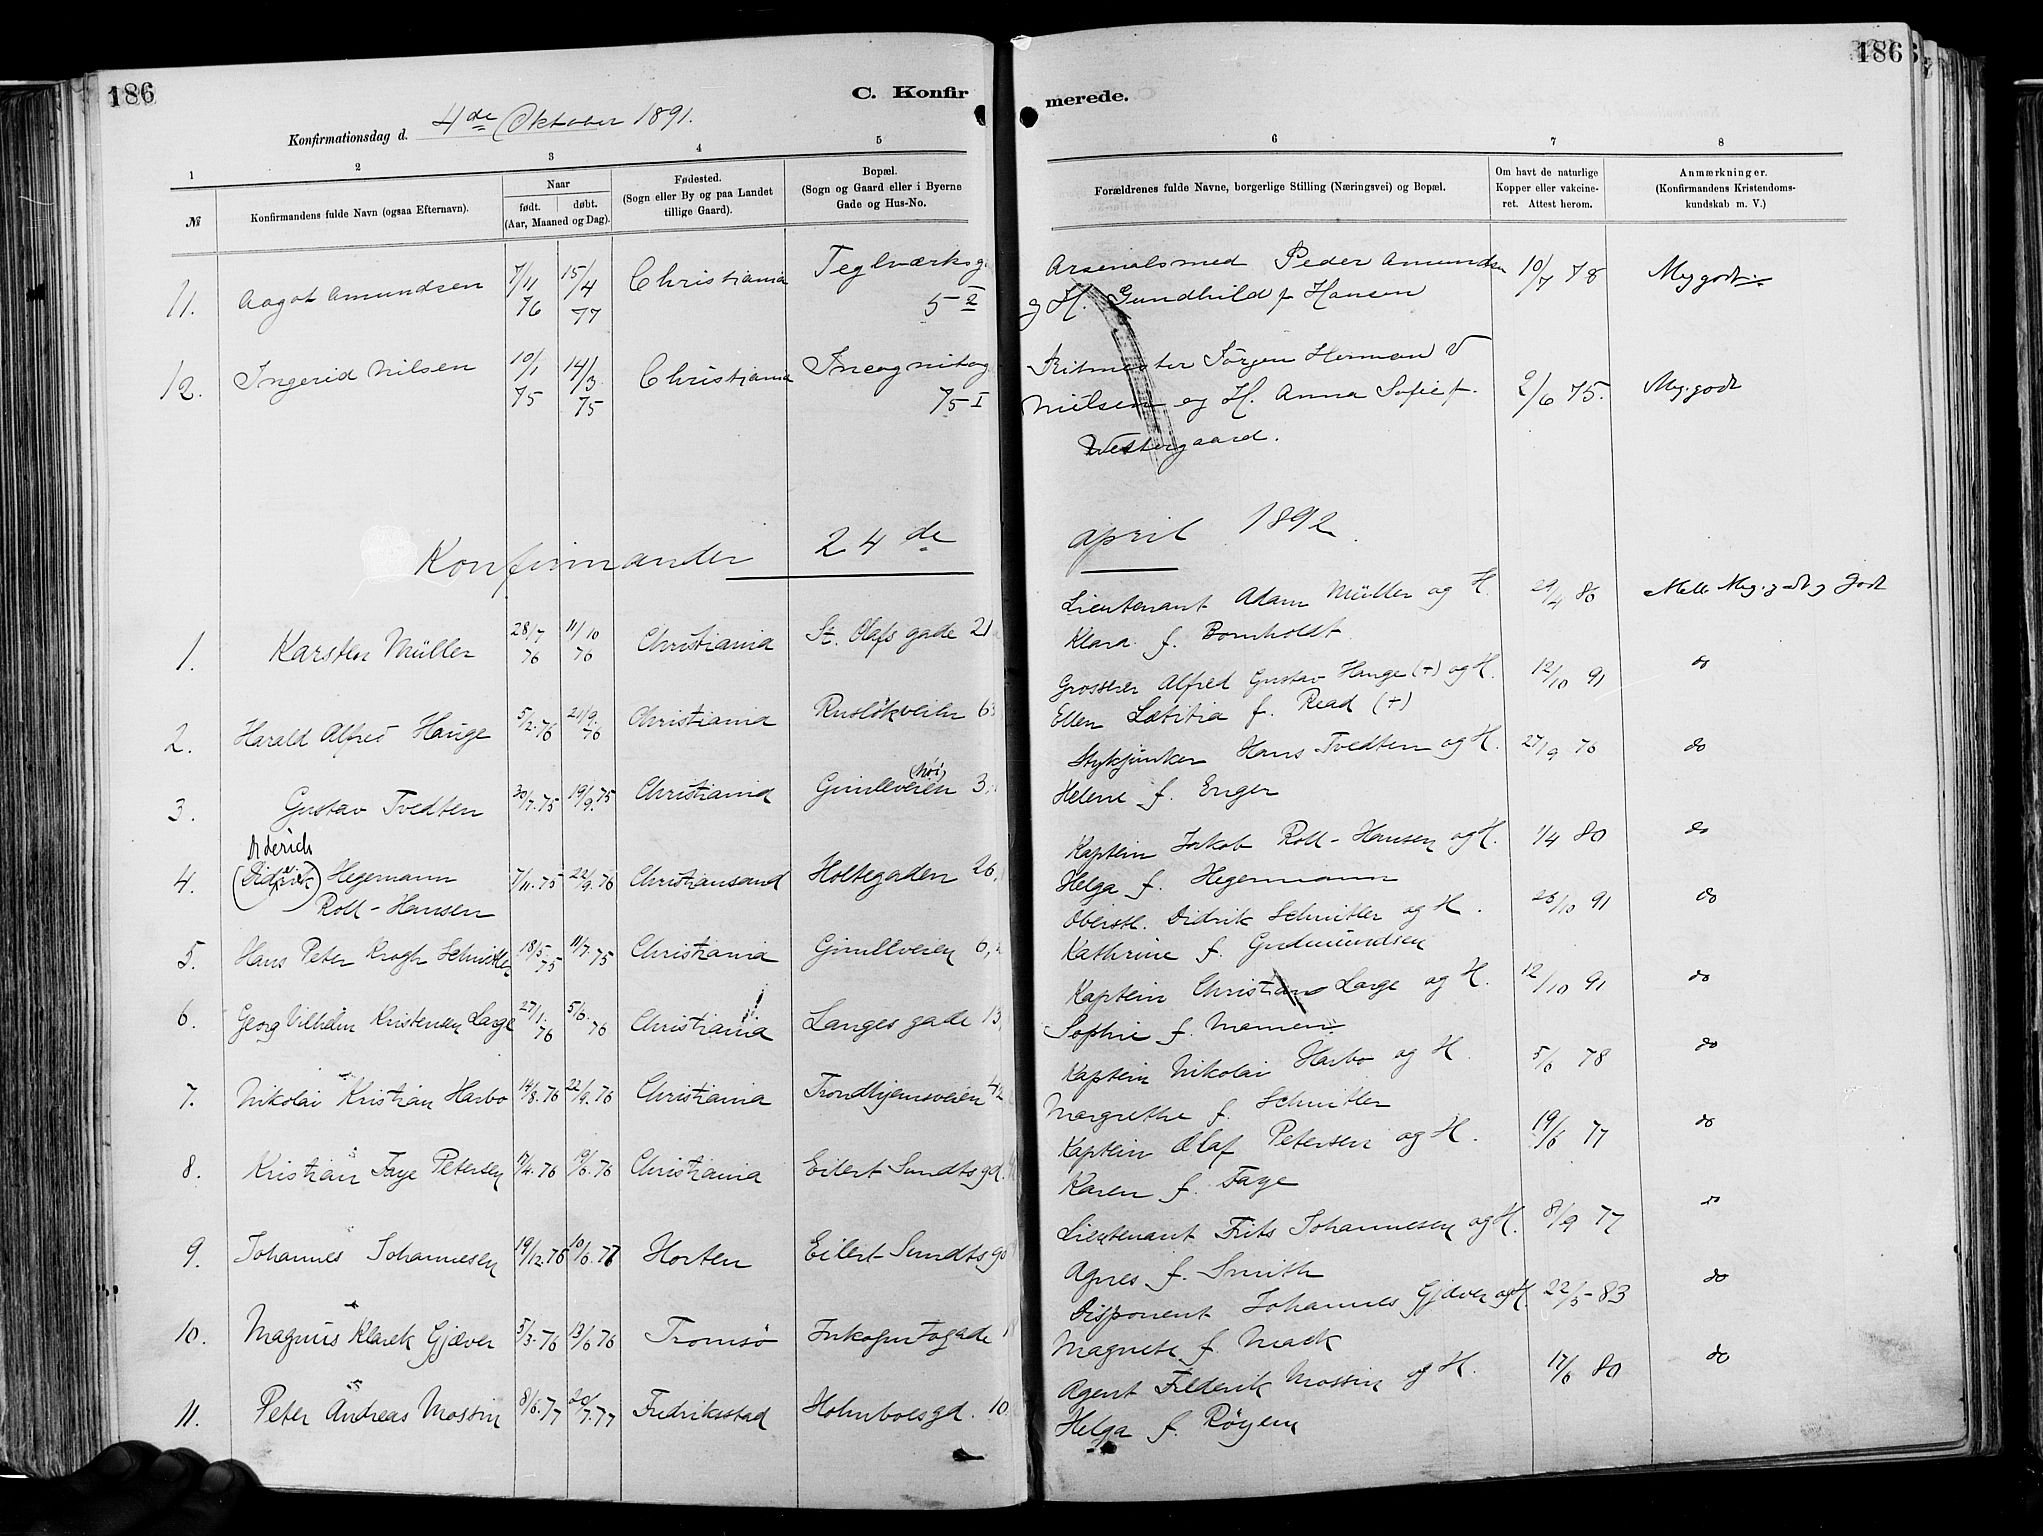 186
C. Konfirmerede.
186
Konfirmationsdag d. 4de Oktober 1891.
1 2 3 4 5 6 7 8
№ Konfirmandens fulde Navn (ogsaa Efternavn). Naar født. døbt. (Aar, Maaned og Dag). Fødested. (Sogn eller By og paa Landet tillige Gaard). Bopæl. (Sogn og Gaard eller i Byerne Gade og Hus-No. Forældrenes fulde Navne, borgerlige Stilling (Næringsvei) og Bopæl. Om havt de naturlige Kopper eller vakcineret. Attest herom. Anmærkninger. (Konfirmandens Kristendomskundskab m. V.)
11. Aagot Amundsen 7/11 76 15/4 77 Christiania Teglværksg. 5 II Arsenalsmed Peder Amundsen 10/7 78 Meg. godt
og H. Gundhild f. Hansen
12. Ingerid Nilsen 10/1 75 14/3 75 Christiania Incognitog 75 I Ritmester Jörgen Herman V 2/6 75. Meg. godt
Nielsen og H. Anna Sofie f.
Westergaard.
Konfirmander 24de april 1892.
1. Karsten Müller 28/7 76 11/10 76 Christiania St. Olafs gade 21 Lieutenant Adam Müller og H. 29/4 80 Mell. Meg. godt og Godt
Klara f. Bornholdt.
2. Harald Alfred Hauge 5/2.76 21/9. 76 Christiania Rusløkveien 6 Grosserer Alfred Gustav Hauge (+) og H. 12/10 91 do
Ellen Lætitia f. Read (+)
3. Gustav Tvedten 30/7.75 19/9.75 Christiania Gimleveien (høi) 3, Stykjunker Hans Tvedten og H. 27/9 76 do
Helene f. Enger
Diderich
4. (Didrik) Hegermann 7/11.75 22/9.76 Christiansand Holtegaden 26, Kaptein Jakob Roll-Hansen og H. 1/4 80 do
Roll-Hansen
Helga f. Hegermann
5. Hans Peter Krogh Schnitler 18/5 75 11/7.75 Christiania Gimleveien 6, Oberstl. Didrik Schnitler og H. 23/10 91 do
Kathrine f. Gudmundsen
6. Georg Vilhelm Kristensen Lage 27/1. 76 5/6. 76 Christiania Langes gade 13, Kaptein Christian Lage og H. 12/10 91 do
Sophie f. Mamen
7. Nikolai Kristian Harbo 14/8.76 22/9.76 Christiania Trondhjemsveien 42 Kaptein Nikolai Harbo og H. 5/6 78 do
Margrethe f. Schnitler
8. Kristian Faye Petersen 17/4.76 19/6.76 Christiania Eilert Sundts gd. Kaptein Olaf Petersen og H. 19/6 77 do
Karen f. Faye
9. Johannes Johannesen 19/12.76 10/6.77 Horten Eilert Sundts gd Lieutenant Frits Johannesen og H. 8/9 77 do
Agnes f. Smith
10. Magnus Klarek Gjæver 5/3.76 13/6 76 Tromsö Inkognitogade 18 Disponent Johannes Gjæver og H. 22/5-83 do
Magnete f. Mack
11. Peter Andreas Mossin 8/6.77 20/7.77 Fredriksstad Holmboesgd. 10 Agent Frederik Mossin og H. 17/6 80 do
Helga f. Røyem